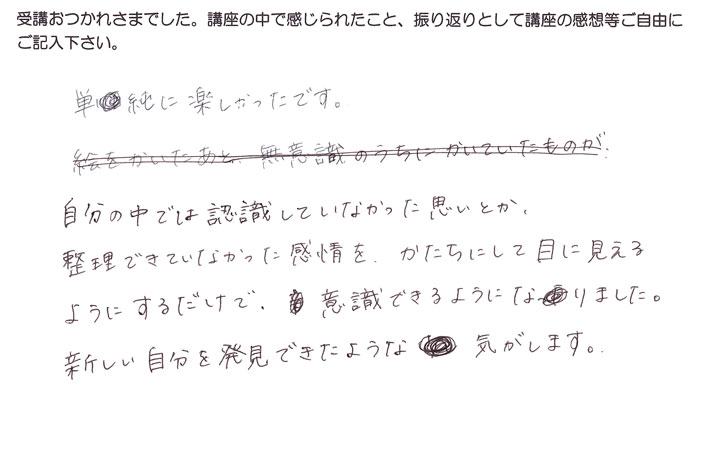 受講おつかれさまでした。講座の中で感じられたこと、振り返りとして講座の感想等ご自由に
ご記入下さい。
単純に楽しかったです。
絵をかいたあと、無意識のうちにかいていたものが、
自分の中では認識していなかった思いとか、
整理できていなかった感情を、かたちにして目に見える
ようにするだけで、意識できるようになりました。
新しい自分を発見できたような気がします。